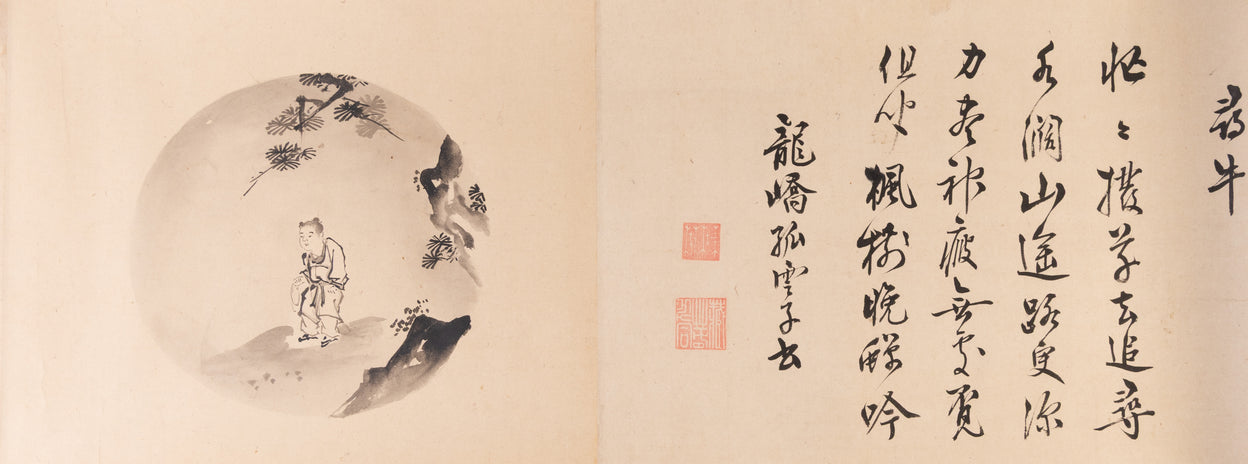 尋牛
忙々撥草去追尋
水闊山遥路更深
力尽神疲無處覓
但聞楓樹晩蟬吟
龍嶠孤雲子書